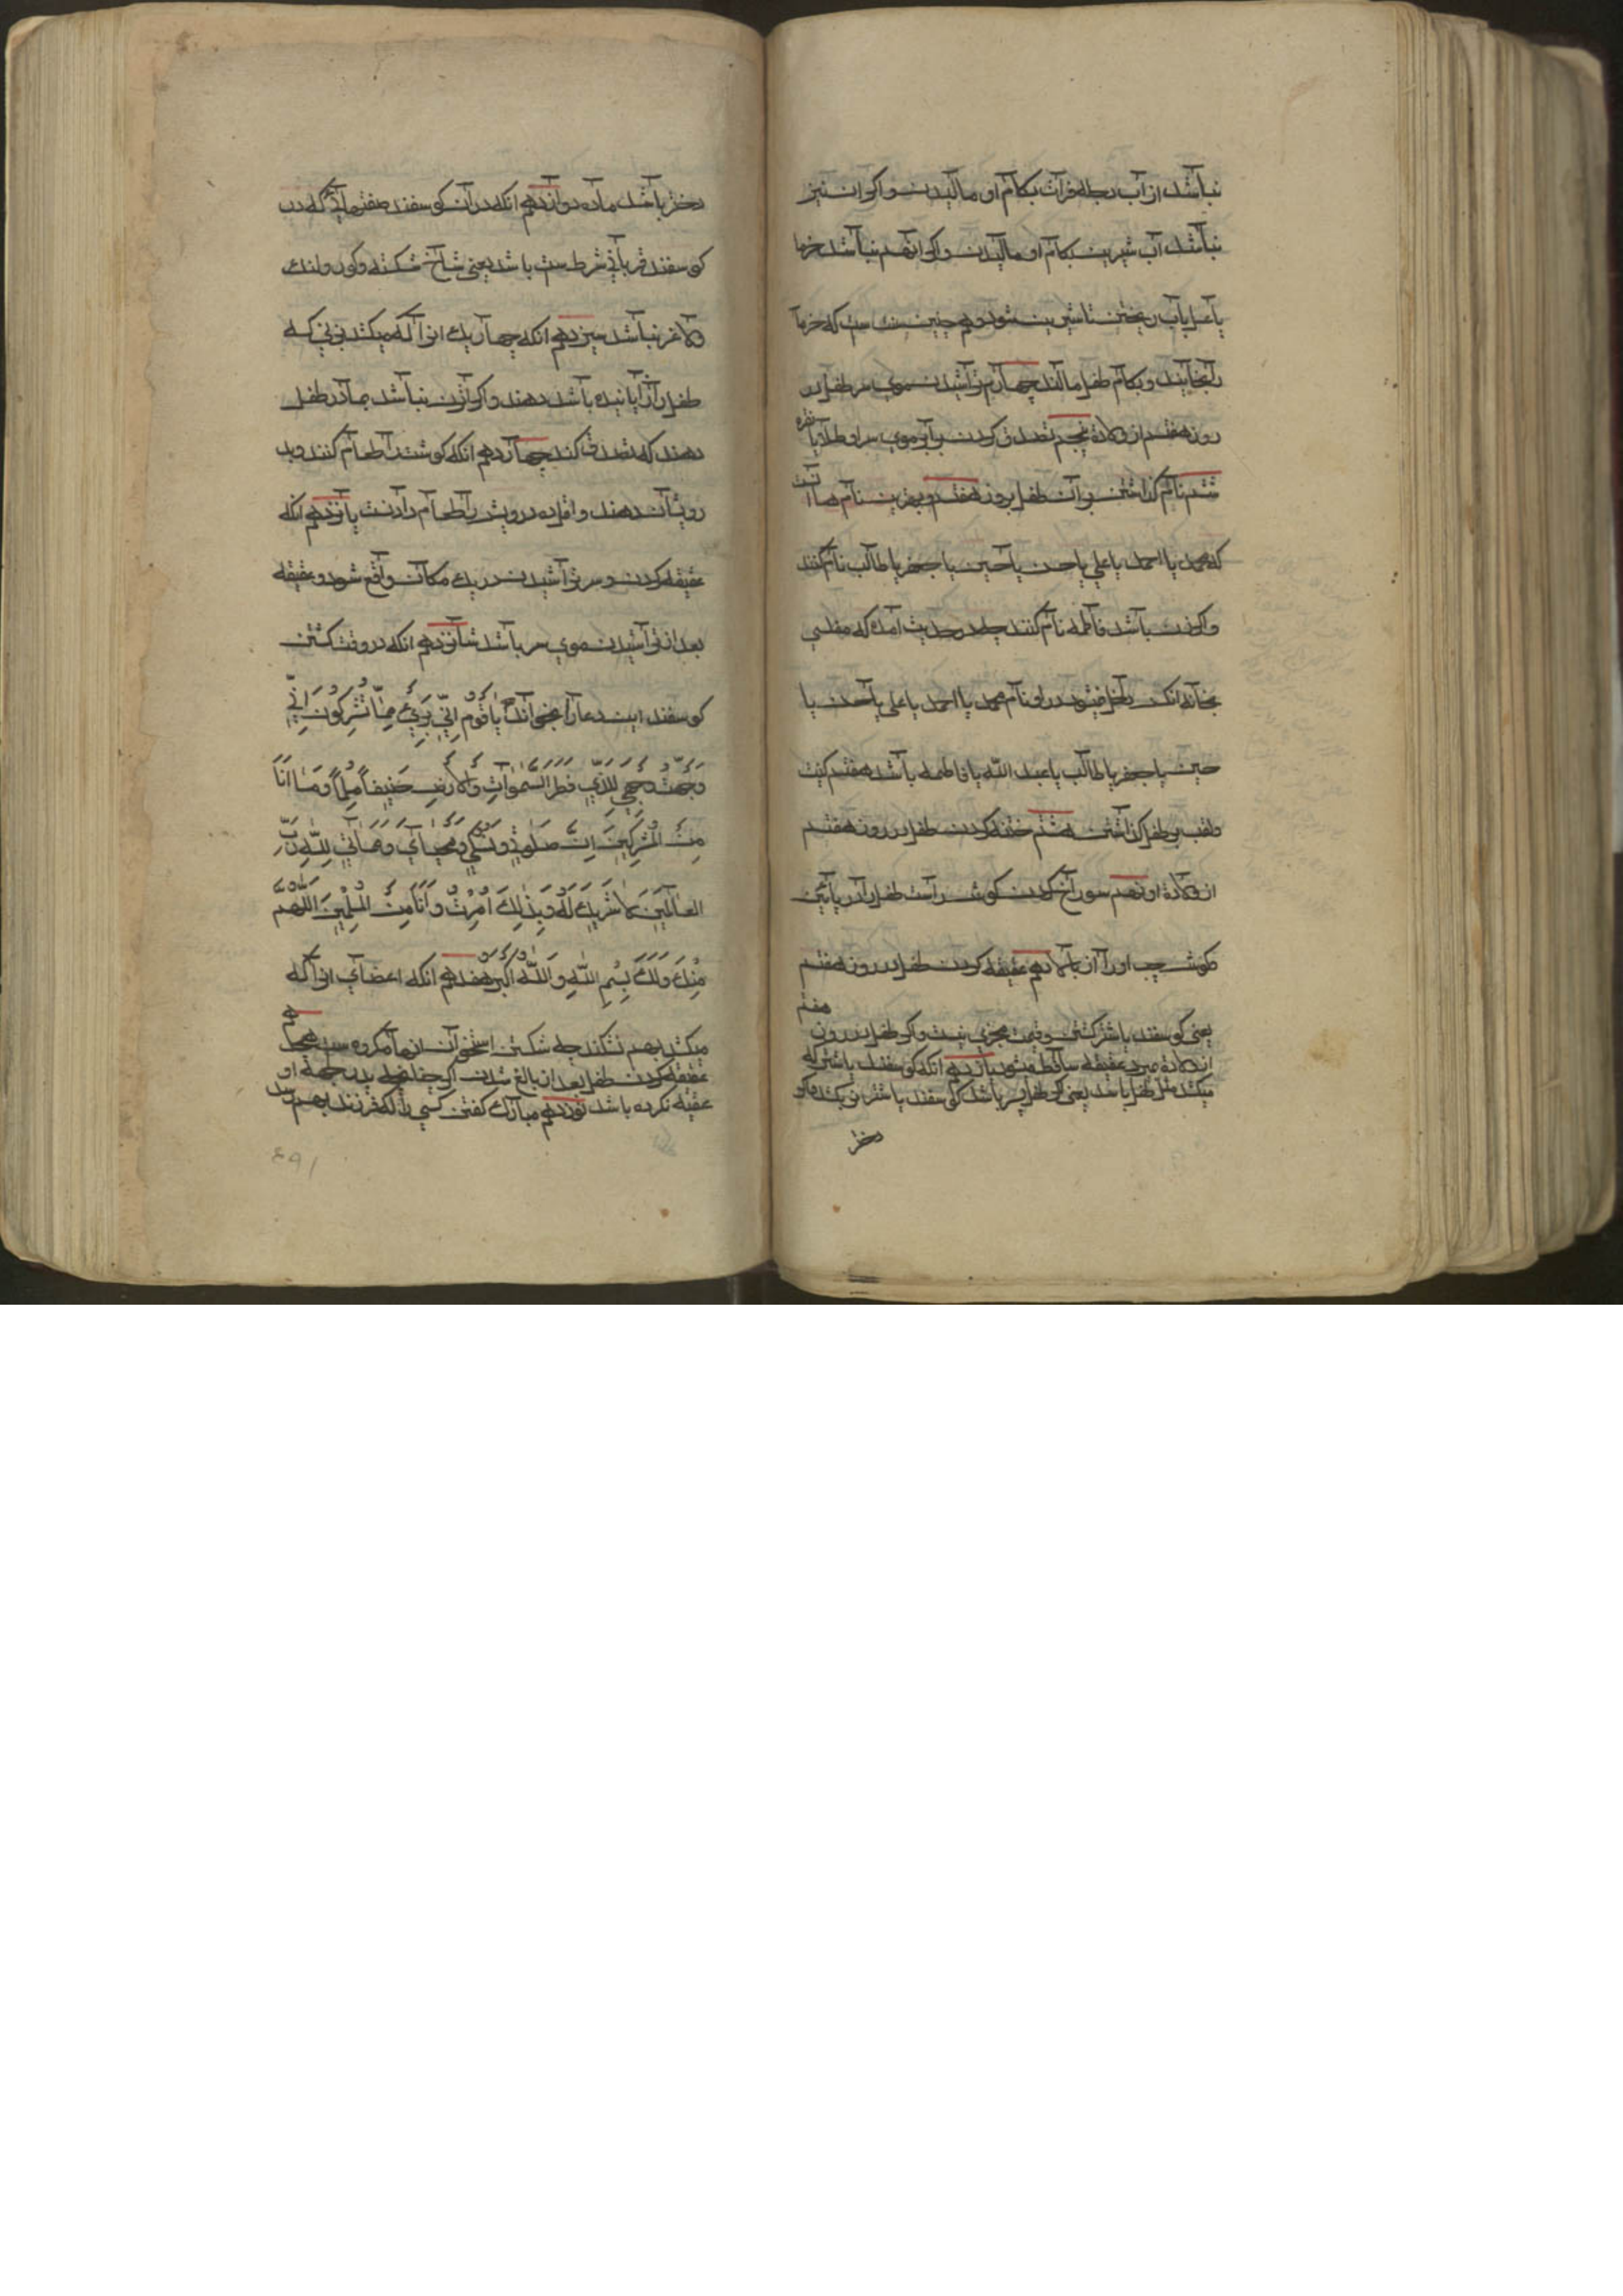 نباشد از آب دجله فرات بکام او مالیدن و اکر ان نیز
نباشد آب شیرین بکام او مالیدن و اکر انهم نباشد خرما
یا عسل بآب ریختن تا شیرین شود و هم چنین سنت است که خرما
بخایند و بکام طفل مالند چهارم تراشیدن موی سر طفل در
روز هفتم از ولادة پنجم تصدق کردن برابر موی سر او طلا یا نقره
ششم نام کذاشتن بر آن طفل بروز هفتم و بهترین نام ها آنست
که محمد یا احمد یا علی یا حسن یا حسین یا جعفر یا طالب نام کنند
و اکر زن باشد فاطمه نام کنند چه در حدیث آمده که مفلسی
بخانه انکس داخل نمیشود در او نام محمد یا احمد یا علی یا حسن یا
حسین یا جعفر یا طالب یا عبد الله یا فاطمه باشد هفتم کنیت
و لقب بر طفل کذاشتن هشتم ختنه کردن طفل در روز هفتم
از ولادة او نهم سوراخ کردن کوش راست طفل از در پائین
و کوش چپ او را از بالا دهم عقیقه کردن طفل در روز هفتم
یعنی کوسفند یا شتر کشتن و قیمت مجزی نیست و اکر طفل در روز هفتم
از ولادة میرد عقیقه ساقط میشود یازدهم انکه کوسفند یا شتر که
میکشد مثل طفل باشد یعنی اکر طفل پسر باشد کوسفند یا شتر نر بکشد و اکر
دختر
دختر باشد ماده دوازدهم انکه در آن کوسفند صفتهائی که در
کوسفند قربانی شرط ست باشد یعنی شاخ شکسته و کور و لنک
و لاغر نباشد سیزدهم انکه چهار یک انرا که میکشد بزنی که
طفل را زایانیده باشد دهند و اکر زن نباشد بمادر طفل
دهند که تصدق کند چهاردهم انکه کوشت را طعام کنند و بد
رویشان دهند و اقل ده درویش را طعام دادنست پانزدهم انکه
عقیقه کردن و سر تراشیدن در یک مکان واقع شود و عقیقه
بعد از تراشیدن موی سر باشد شانزدهم انکه در وقت کشتن
کوسفند این دعا را بخواند یَا قَوْمِ اِنِّی بَرِیءٌ مِمَّا تُشْرِکُونَ اِنِّی
وَجَّهْتُ وَجْهِیَ لِلَّذِی فَطَرَ السَّمٰوَاتِ وَالْاَرْضِ حَنِیفاً مُسْلِماً وَمَا اَنَا
مِنَ الْمُشْرِکِینَ اِنَّ صَلٰوتِی وَنُسُکِی وَمَحْیَایَ وَمَمَاتِی لِلّٰهِ رَبِّ
الْعَالَمِینَ لَا شَرِیکَ لَهُ وَبِذٰلِکَ اُمِرْتُ وَاَنَا مِنَ الْمُسْلِمِینَ اَللّٰهُمَّ
مِنْکَ وَلَکَ بِسْمِ اللّٰهِ وَاللّٰهُ اَکْبَرُ هفدهم انکه اعضای انرا که
میکشد بهم نشکند چه شکستن استخوان انها مکروه ست هجدهم
عقیقه کردن طفل بعد از بالغ شدن اکر چنانچه پدر جهة او
عقیقه نکرده باشد نوزدهم مبارک کفتن کسی را که فرزند بهم رسد